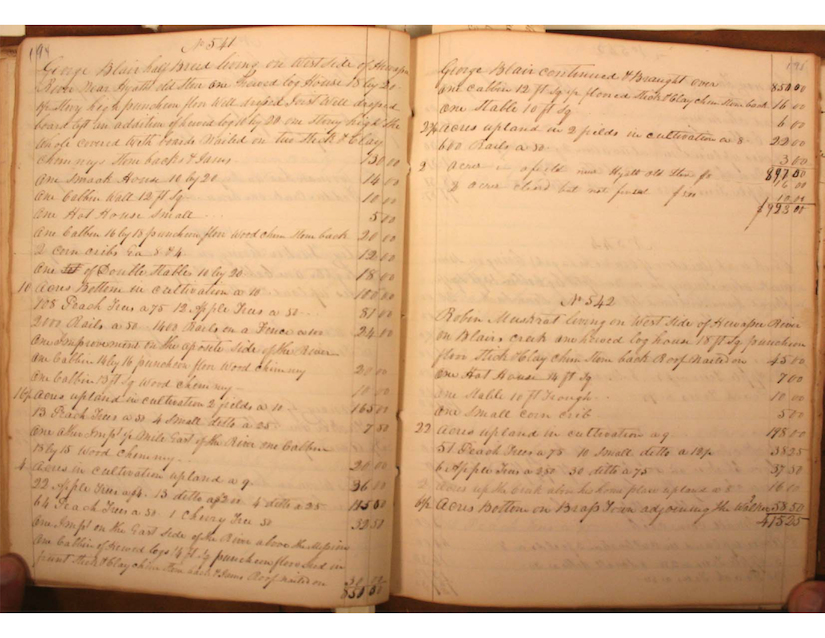 194
No 541
George Blair half Breed living on West Side of Hiwassee
River Near Hyatts old Store one hewed log House 18 by 20
Story high puncheon floor Well
board loft an addition of hewed log 16 by 20 one Story high the
whole covered With boards Nailed on two Stick & Clay
chimneys Stone backs & Jams 130 00
one Smoak House 16 by 20 14 00
one Cabbin Wall 12 ft Sq 10 00
one Hot House Small 5 00
one Cabbin 16 by 18 puncheon floor Wood chim Stone back 20 00
2 corn cribs 12 00
one Set of Double Stables 10 by 20 18 00
10 Acres Bottom in cultivation a 10 100 00
108 Peach Trees a 75 12 Apple Trees a 50 81 00
2000 Rails a 50 1400 Rails on a Fence 24 00
one Improvement on the aposite Side of the River
one Cabbin 14 by 16 puncheon floor Wood chimny 20 00
one Cabbin 13 ft Sq Wood chemny 10 00
16½ Acres upland in cultivation 2 fields a 10 165 00
13 Peach Trees a 50 4 Small ditto a 25 7 50
one other Impt ½ Mile East of the River one Cabbin
13 by 15 Wood chemny 20 00
4 Acres in cultivation upland a 9 36 00
22 Apple Trees 13 ditto 4 ditto a 25
64 Peach Trees a 50 1 Cherry Tree 50 32 50
one Impt on the East Side of the River above the Mission
one Cabbin of hewed logs 14 ft Sq puncheon floor
Stick & Clay chim Stone back & Jams Roof Nailed on 30 00
850 00
195
George Blair continued & Braught over 850 00
one Cabbin 12 ft Sq floored Stick & Clay chim Stone back 16 00
one Stable 10 ft Sq 6 00
2¾ Acres upland in 2 fields in cultivation a 8 22 00
600 Rails a 50 3 00
897 00
2 Acres in a field near Hyatt old Store 16 00
8 acres but not 10 00
$923 00
No 542
Robin Muskrat living on West Side of Hiwassee River
on Blairs creek one hewed log house 18 ft Sq puncheon
floor Stick & Clay chim Stone back Roof Nailed on 45 00
one Hot House 14 ft Sq 7 00
one Stable 10 ft & Trough 10 00
one Small corn crib 5 00
22 Acres upland in cultivation a 9 198 00
51 Peach Trees a 75 10 Small ditto 38 25
6 Apple Trees a 250 30 ditto a 75 37 50
2 Acres up the creek above his home place upland a 8 16 00
6½ Acres Bottom on Brass Town adjoining the 58 50
415 25